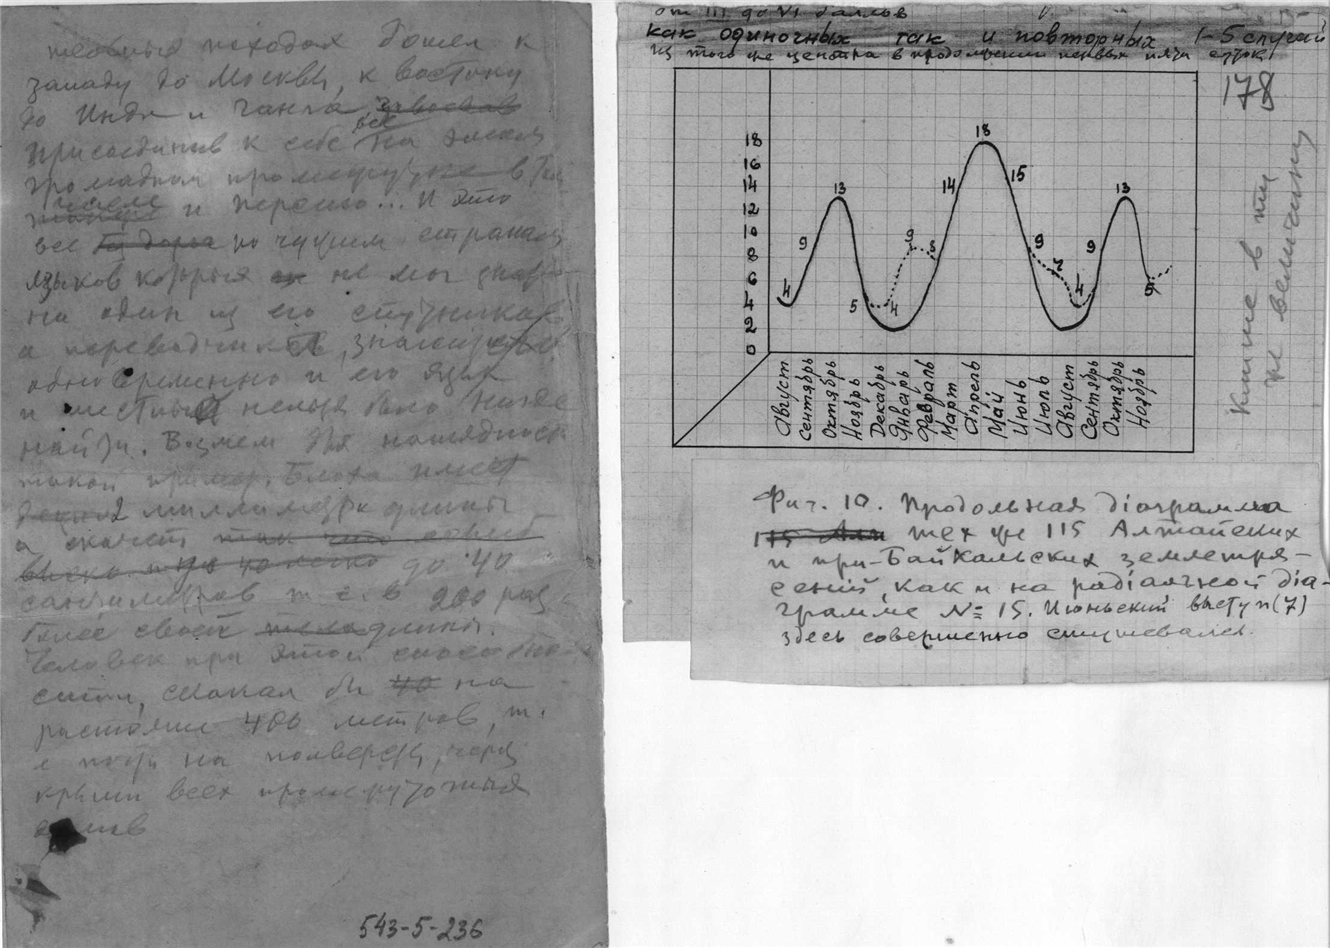 походах дошел к
западу до Москвы, к востоку
до Инда и Ганга
Присоединив к себе все на
громадном
и Персию... И это
все по чужим странам
языков которых он не мог знать
ни один из его спутников
а переводчиков, знающих
одновременно и его язык
и местный нельзя было нигде
найти. Возмем для наглядности
такой пример. Блоха имеет
2 миллиметра длины
а скачет до 40
сантиметров т. е. в 200 раз
более своей длины.
Человек при этой способно-
сти, скакал бы 40 на
растояние 400 метров, т.
е почти на полверсты,
всех промежуточных
543-5-236
от III до VI баллов
как одиночных так и повторных (-5 случай
из того же центра в продолжении первых пяти суток)
178
Клише в ту
же величину
18
16
14
12
10
8
6
4
2
0
4
9
13
5
4
9
8
14
18
15
9
4
9
13
Август
Сентябрь
Октябрь
Ноябрь
Декабрь
Январь
Февраль
Март
Апрель
Май
Июнь
Июль
Август
Сентябрь
Октябрь
Ноябрь
Фиг. 10. Продольная діаграмма
115 тех же 115 Алтайских
и при-Байкальских землетря-
сений, как и на радіальной діа-
грамме № 15. Июньский выступ (7)
здесь совершенно стушевался.